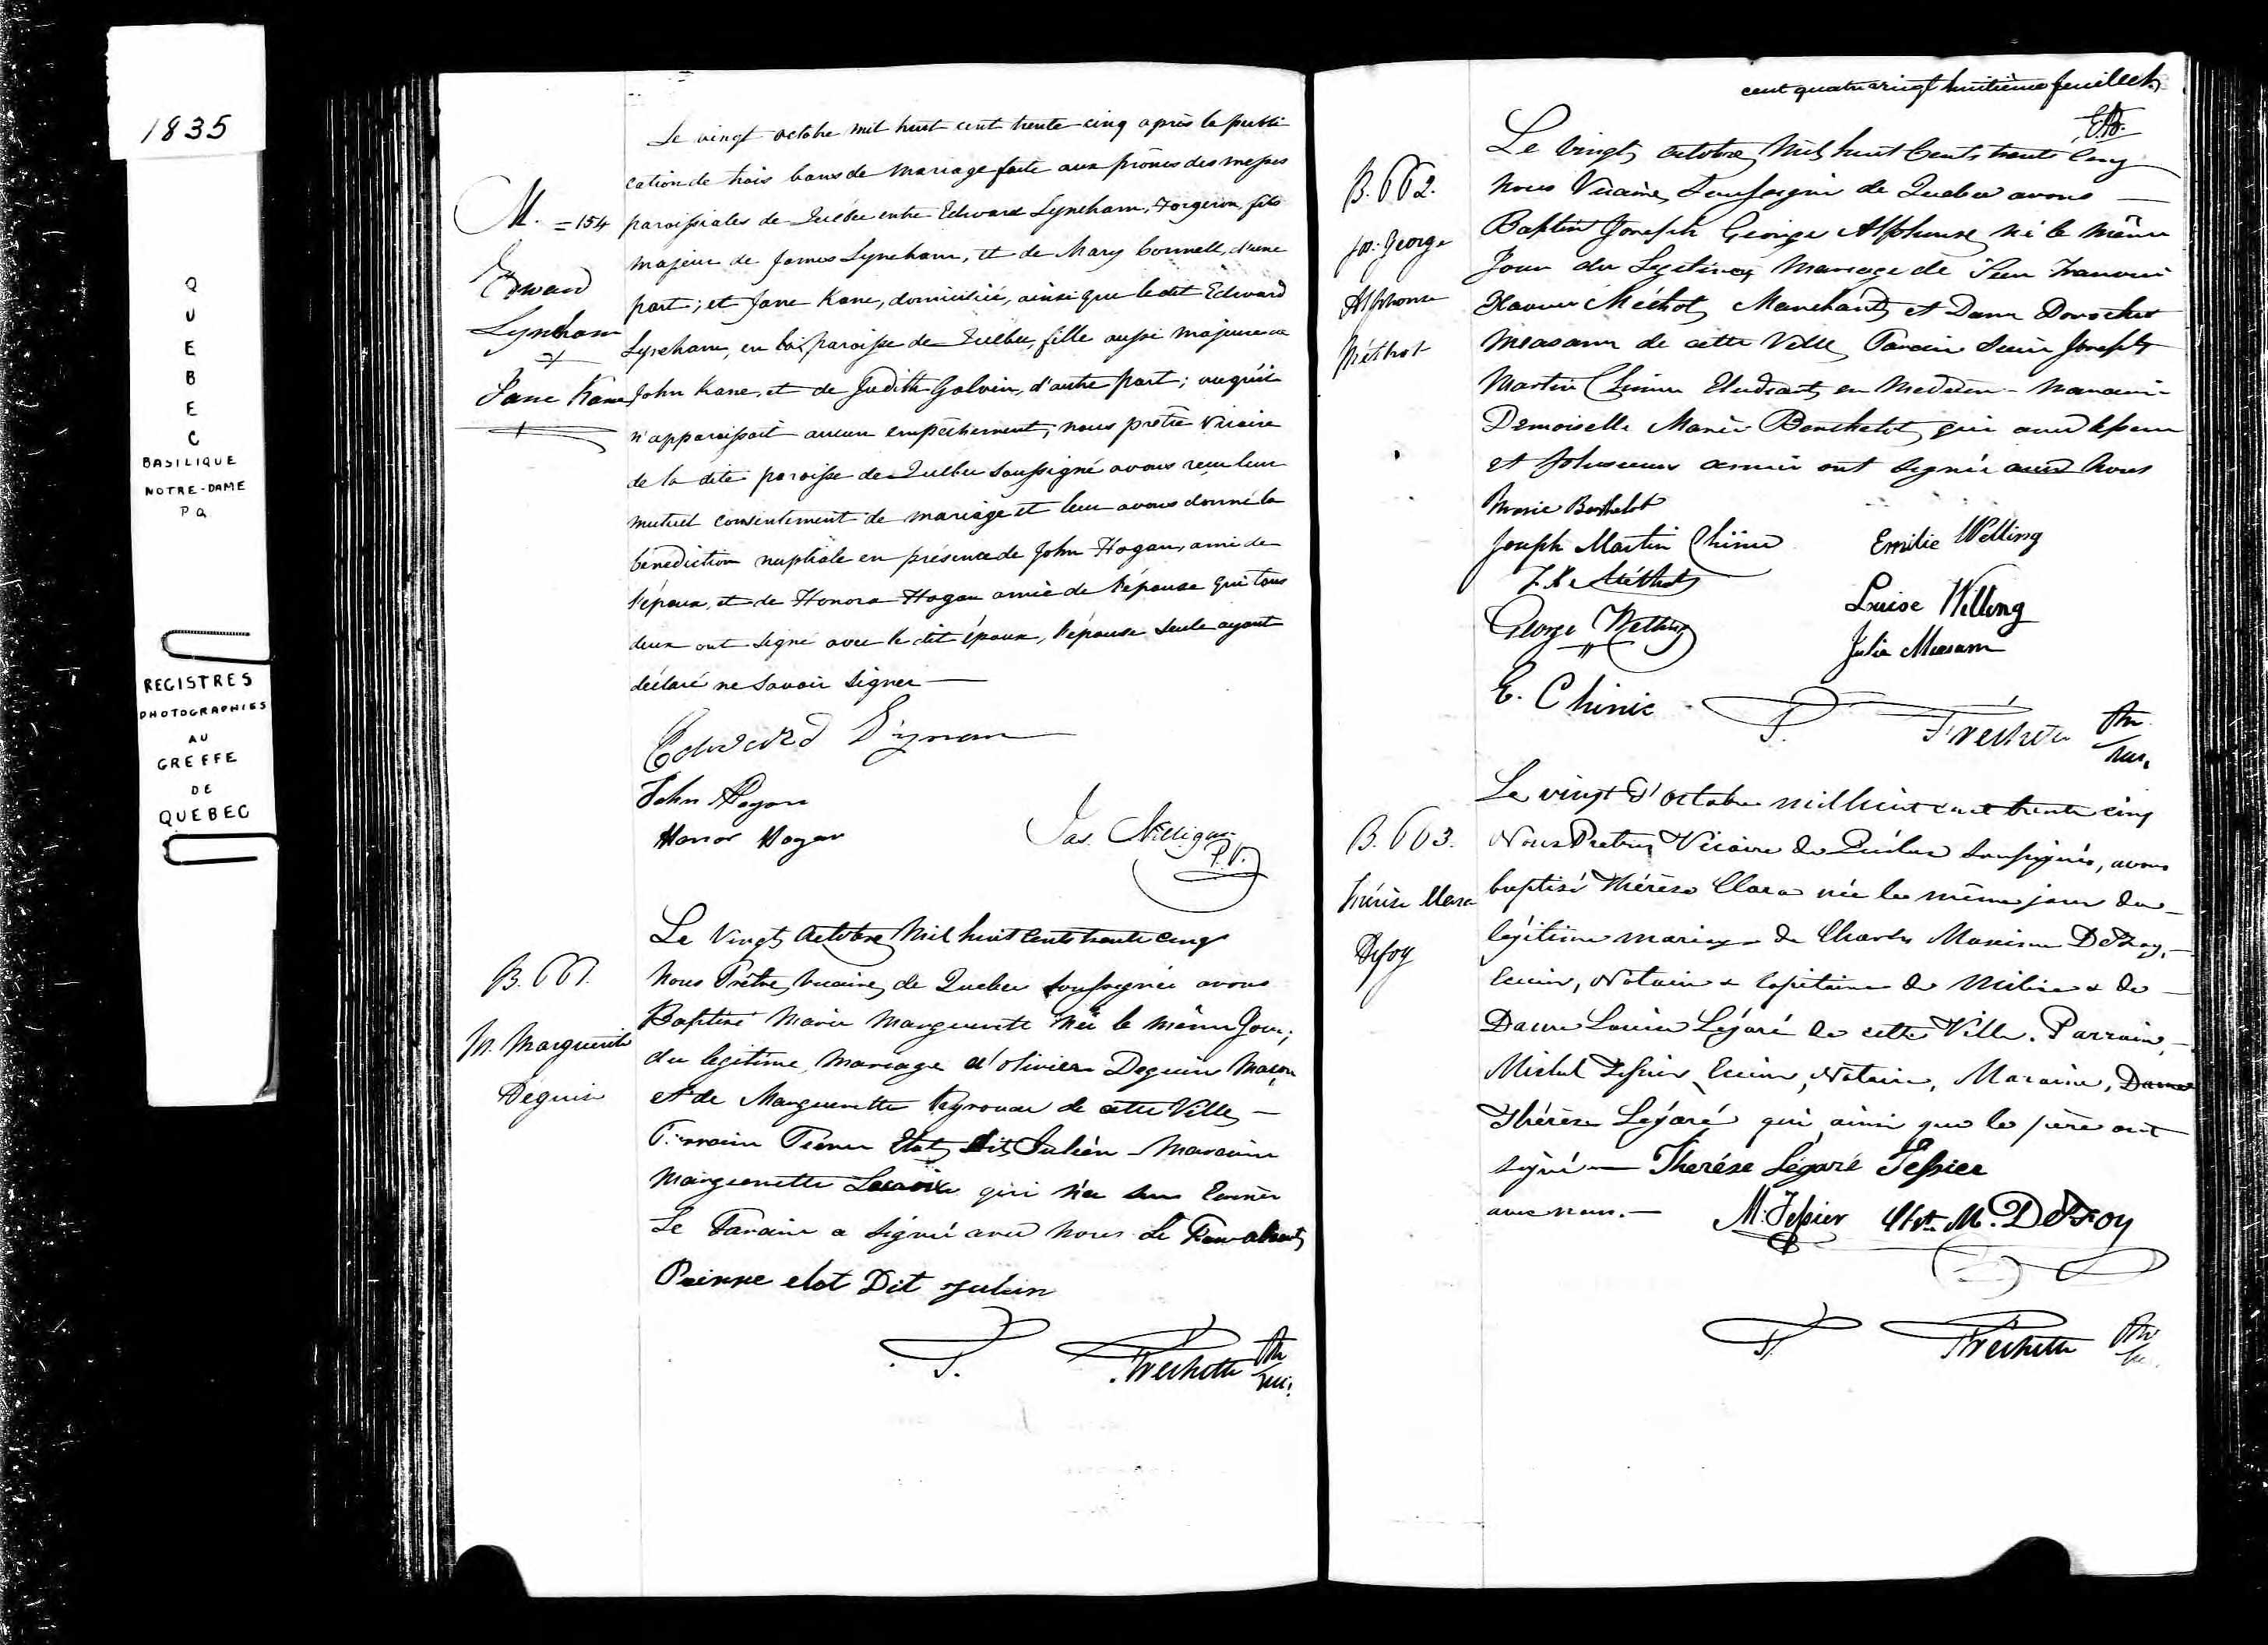 1835
QUEBEC
BASILIQUE
NOTRE-DAME
PQ
REGISTRES
PHOTOGRAPHIES
AU
GREFFE
DE
QUEBEC
M. = 154
Edward
Lyncham
&
Jane Kane
Le vingt octobre mil huit cent trente-cinq après la publi
cation de trois bans de mariage faite aux prônes des messes
paroissiales de Québec entre Edward Lyncham, Forgeron, fils
majeur de James Lyncham, et de Mary Connell, d'une
part; et Jane Kane, domiciliée, ainsi que le dit Edward
Lyncham, en la paroisse de Québec, fille aussi majeure de
John Kane, et de Judith Galvin, d'autre part; vu qu'il
n'apparaissait aucun empêchement, nous prêtre vicaire
de la dite paroisse de Québec soussigné avons reçu leur
mutuel consentement de mariage et leur avons donné la
bénédiction nuptiale en présence de John Hogan, ami de
l'époux, et de Honora Hogan amie de l'épouse qui tous
deux ont signé avec le dit époux, l'épouse seule ayant
déclaré ne savoir signer —
Edward
John Hogan
Honor Hogan
Jas. Nelligan
P.V.
B. 661.
M. Marguerite
Deguise
Le Vingt Octobre Mil huit Cents trente cinq
Nous Prêtre, vicaire, de Quebec soussigné avons
Baptisé Marie Marguerite Née le même Jour;
du legitime mariage d'olivier Deguise Maçon
et de Marguerite de cette Ville —
Parrain Pierre Elot dit Julien – Maraine
Marguerite Lacroix qui n'a su
Le Parain a signé avec nous Le Père absent
Peirre elot Dit Julien
P. Fréchette Ptr
vic.
cent quatrevingt huitième feuillet.
B. 662.
Jos. George
Alphonse
Méthot
Le Vingt Octobre Mil huit Cents trente Cinq
Nous Vicaire, Soussigné de Quebec avons —
Baptisé Joseph George Alphonse né le même
Jour du Legitime Mariage de Sieur Francois
Xavier Méthot Marchand et Dame Dorothée
Measam de cette Ville Parain Sieur Joseph
Martin Chinic Etudiant en Medecin – Maraine
Demoiselle Marie Berthelot qui avec le pere
et plusieurs amis ont signé avec Nous
Marie Berthelot
Joseph Martin Chinic
Emilie Welling
F. X. Méthot
Luise Welling
George Welling
Julia Measam
E. Chinic
P. Fréchette Ptr
vic.
B. 663.
Thérèse Clara
Defoy
Le vingt d'octobre mil huit cent trente cinq
Nous Pretre, Vicaire de Québec soussigné, avons
baptisé Thérèse Clara née le même jour du
légitime mariage de Charles Maxime DeFoy,
Ecuier, Notaire & Capitaine de Milice & de —
Dame Louise Légaré de cette Ville. Parrain,
Michel Tessier, Ecuier, Notaire, Maraine, Dame
Thérèse Légaré qui, ainsi que le père ont
signé — Therése Légaré Tessier
avec nous. — M. Tessier Chs. M. DeFoy
P. Fréchette Ptr
vic.